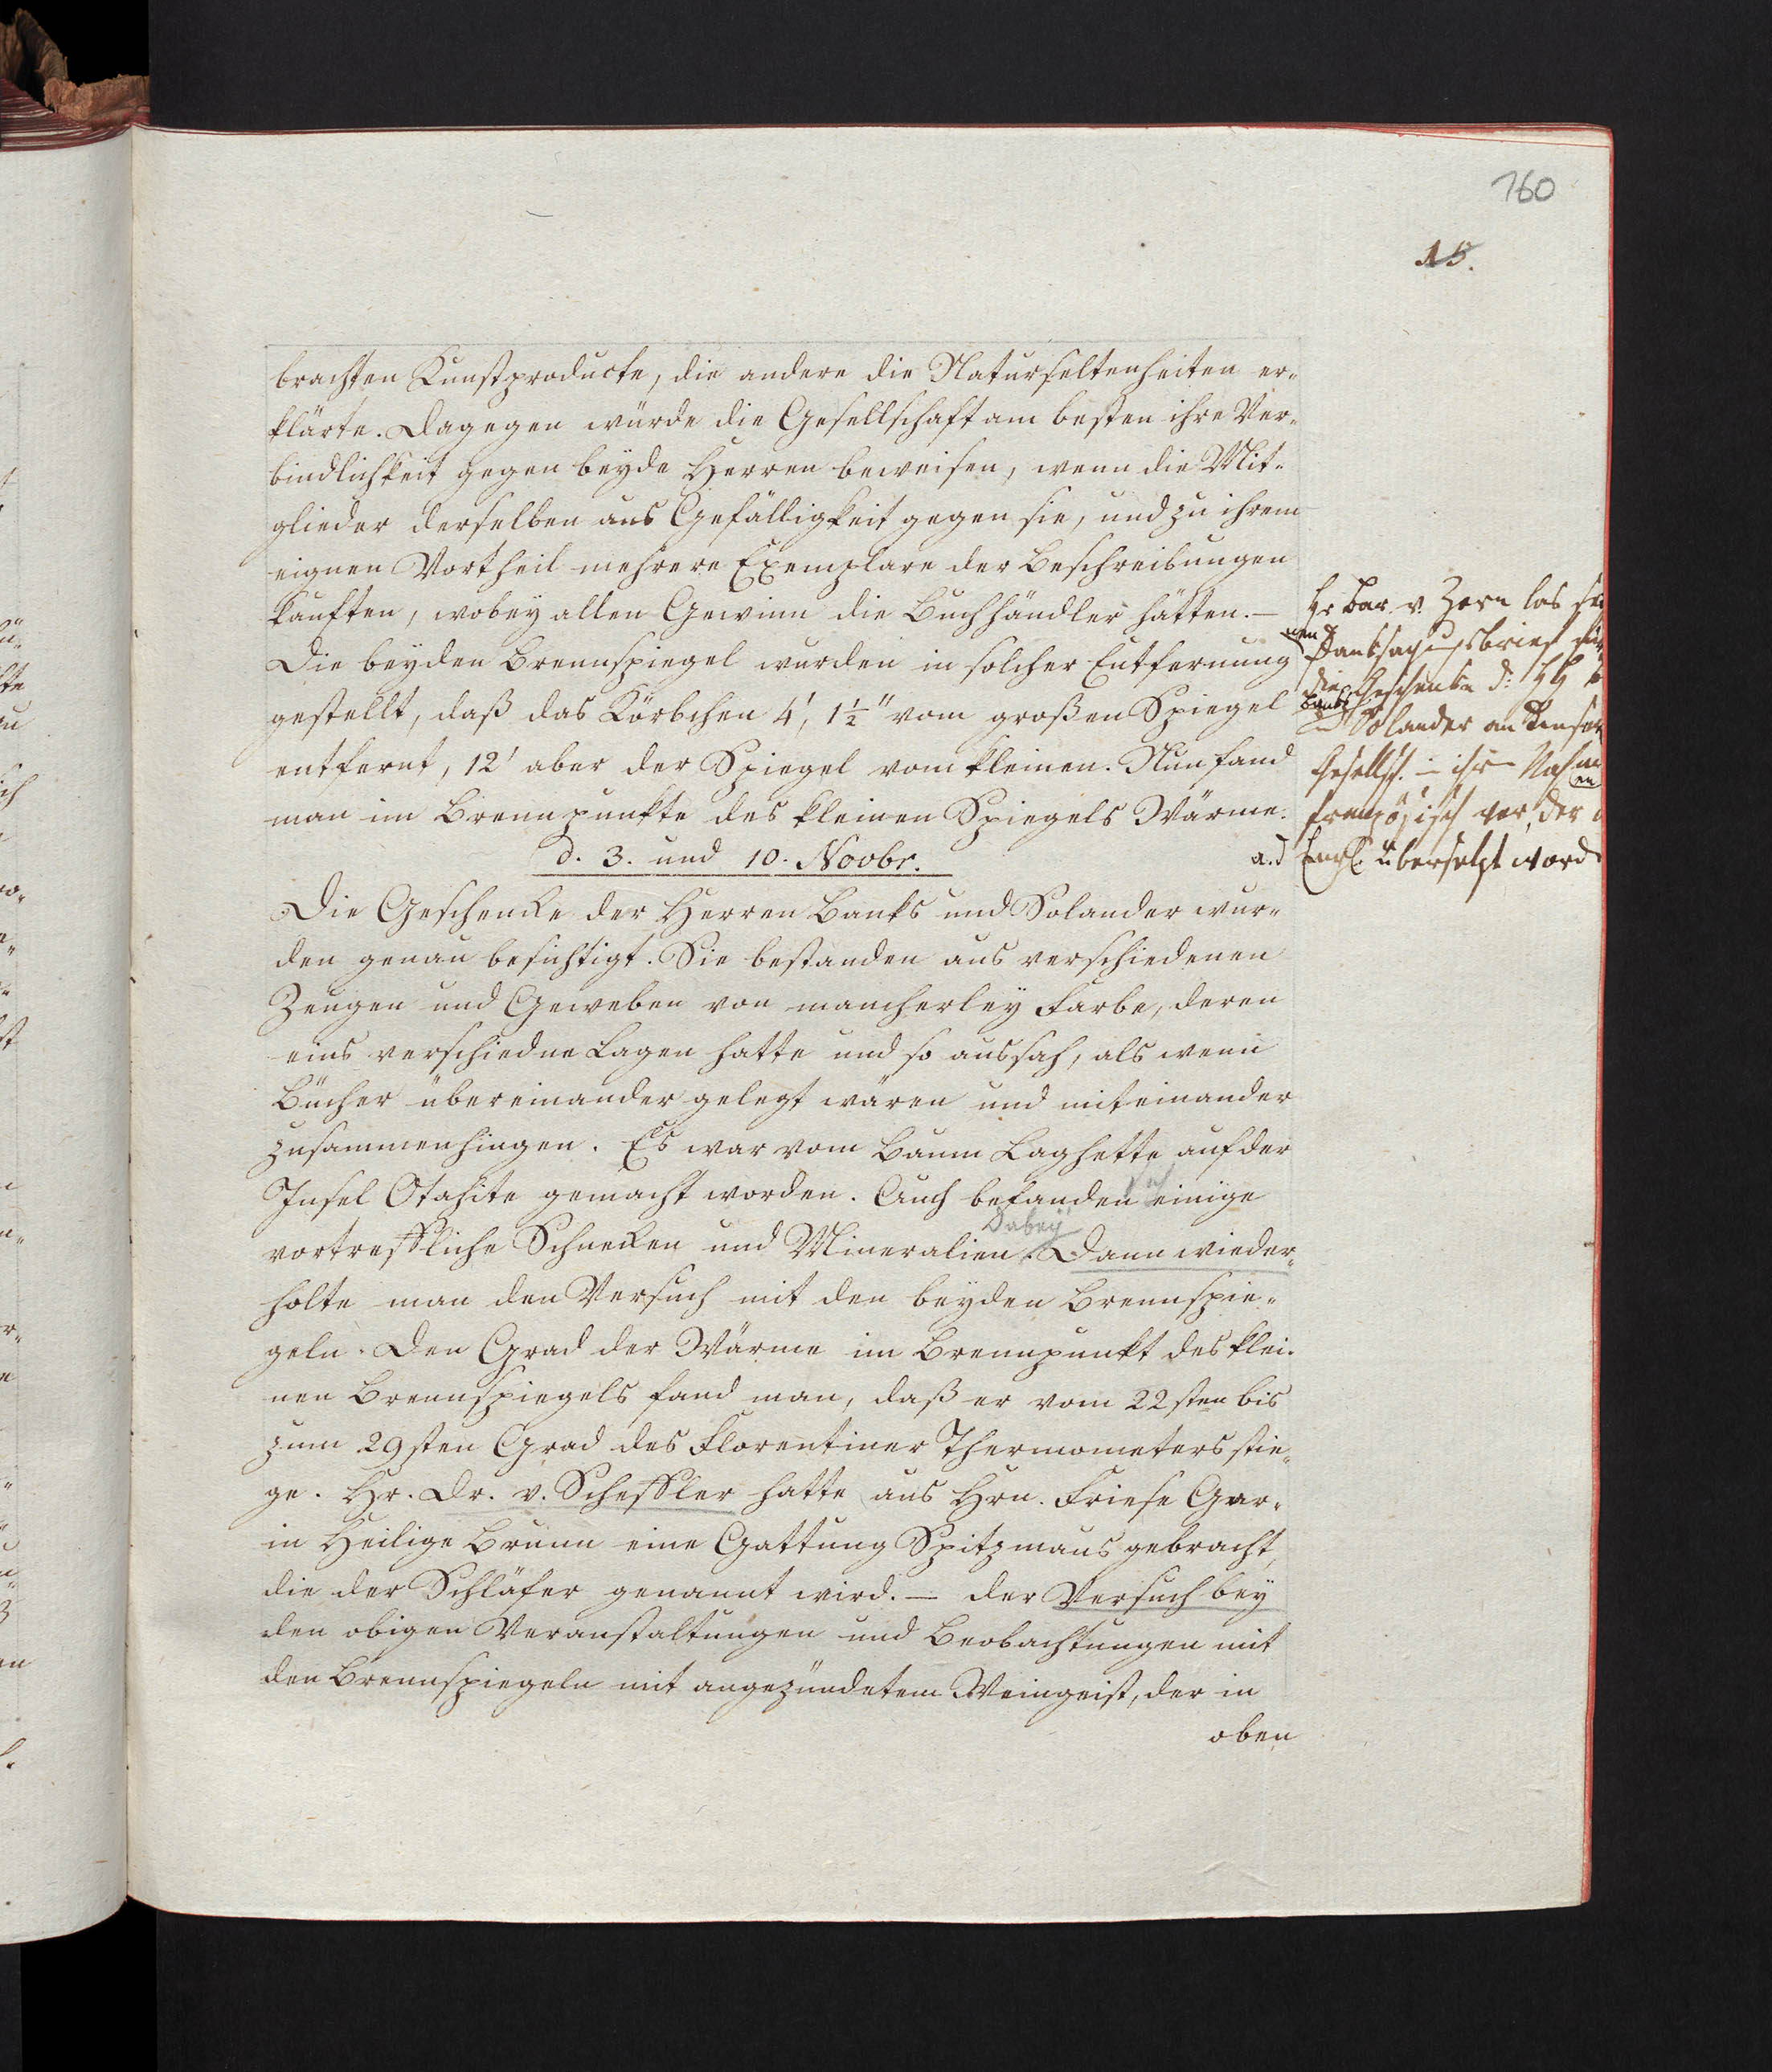 160
15.
brachten Kunstproducte, die andere die Naturseltenheiten er-
klärte. Dagegen würde die Gesellschaft am besten ihre Ver-
bindlichkeit gegen beyde Herren beweisen, wenn die Mit-
glieder derselben aus Gefälligkeit gegen sie, und zu ihrem
eignen Vortheil mehrere Exemplare der Beschreibungen
kauften, wobey allen Gewinn die Buchhändler hätten. —
Die beyden Brennspiegel wurden in solcher Entfernung
gestellt, daß das Körbchen 4', 1½" vom großen Spiegel
entfernt, 12' aber der Spiegel vom kleinen. Nun fand
man im Brennpunkte des kleinen Spiegels Wärme.
Hr Bar. v. Zorn las sei
nen Danksagungsbrief für
die Geschenke d. HH
Banks
u Solander an unser
Gesellsch. in ihr Nahm
en
französisch vor, der
a. d Engl. übersetzt word
d. 3. und 10. Novbr.
Die Geschencke der Herren Banks und Solander wur-
den genau besichtigt. Sie bestanden aus verschiedenen
Zeugen und Geweben von mancherley Farbe, deren
eins verschiedne Lagen hatte und so aussah, als wenn
Bücher übereinander gelegt wären und miteinander
zusammenhingen. Es war vom Baum Laghette auf der
Insel Otahite gemacht worden. Auch befanden sich einige
vortreffliche Schnecken und Mineralien dabey. Dann wieder-
holte man den Versuch mit den beyden Brennspie-
geln. Den Grad der Wärme im Brennpunkt des klei-
nen Brennspiegels fand man, daß er vom 22sten bis
zum 29sten Grad des Florentiner Thermometers stie-
ge. Hr. Dr. v. Scheffler hatte aus Hrn. Friese Gar-
in Heilige Brunn eine Gattung Spitzmaus gebracht,
die der Schläfer genannt wird. — der Versuch bey
den obigen Veranstaltungen und Beobachtungen mit
den Brennspiegeln mit angezündetem Weingeist, der in
oben